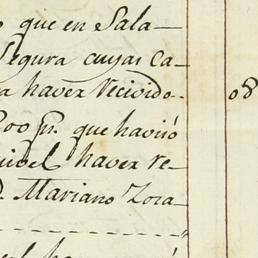 que en Sala-
Segura cuyas Ca-
a haver recivido.
08
200 ps. que havisó
haver re-
D. Mariano Zora